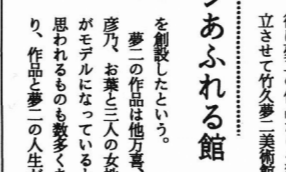 立させて竹久夢二美術館
ンあふれる館
を創設したという。
夢二の作品は他万喜、
彦乃、お葉と三人の女性
がモデルになっていると
思われるものも数多くあ
り、作品と夢二の人生が